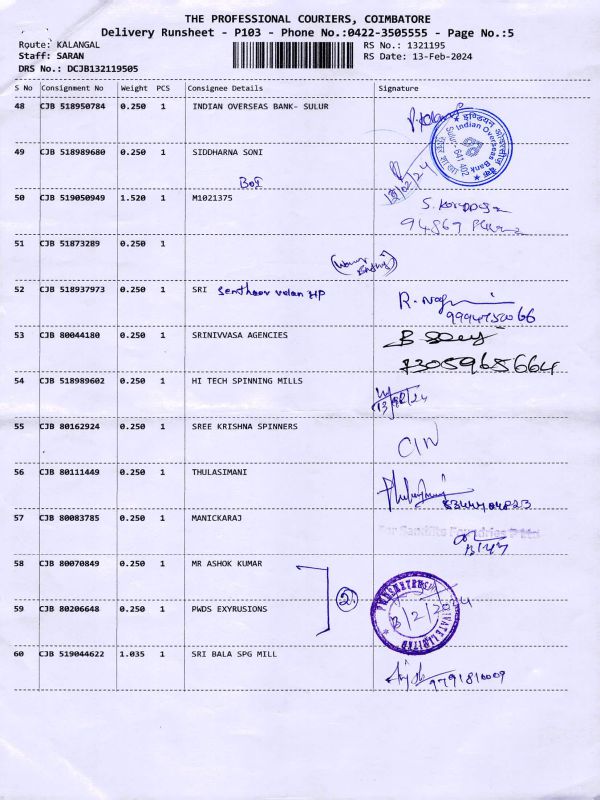 THE PROFESSIONAL COURIERS, COIMBATORE
Delivery Runsheet - P103 - Phone No.:0422-3505555 - Page No.:5
Route: KALANGAL RS No.: 1321195
Staff: SARAN RS Date: 13-Feb-2024
DRS No.: DCJB132119505
S No Consignment No Weight PCS Consignee Details Signature
48 CJB 518950784 0.250 1 INDIAN OVERSEAS BANK- SULUR
Indian Overseas Bank
49 CJB 518989680 0.250 1 SIDDHARNA SONI
BOI
13/02/24
50 CJB 519050949 1.520 1 M1021375
51 CJB 51873289 0.250 1
52 CJB 518937973 0.250 1 SRI Senthoor velan HP
9994750066
53 CJB 80044180 0.250 1 SRINIVVASA AGENCIES
7305965664
54 CJB 518989602 0.250 1 HI TECH SPINNING MILLS
55 CJB 80162924 0.250 1 SREE KRISHNA SPINNERS
56 CJB 80111449 0.250 1 THULASIMANI
57 CJB 80083785 0.250 1 MANICKARAJ
58 CJB 80070849 0.250 1 MR ASHOK KUMAR
2
59 CJB 80206648 0.250 1 PWDS EXYRUSIONS
PRIVATE LIMITED
60 CJB 519044622 1.035 1 SRI BALA SPG MILL